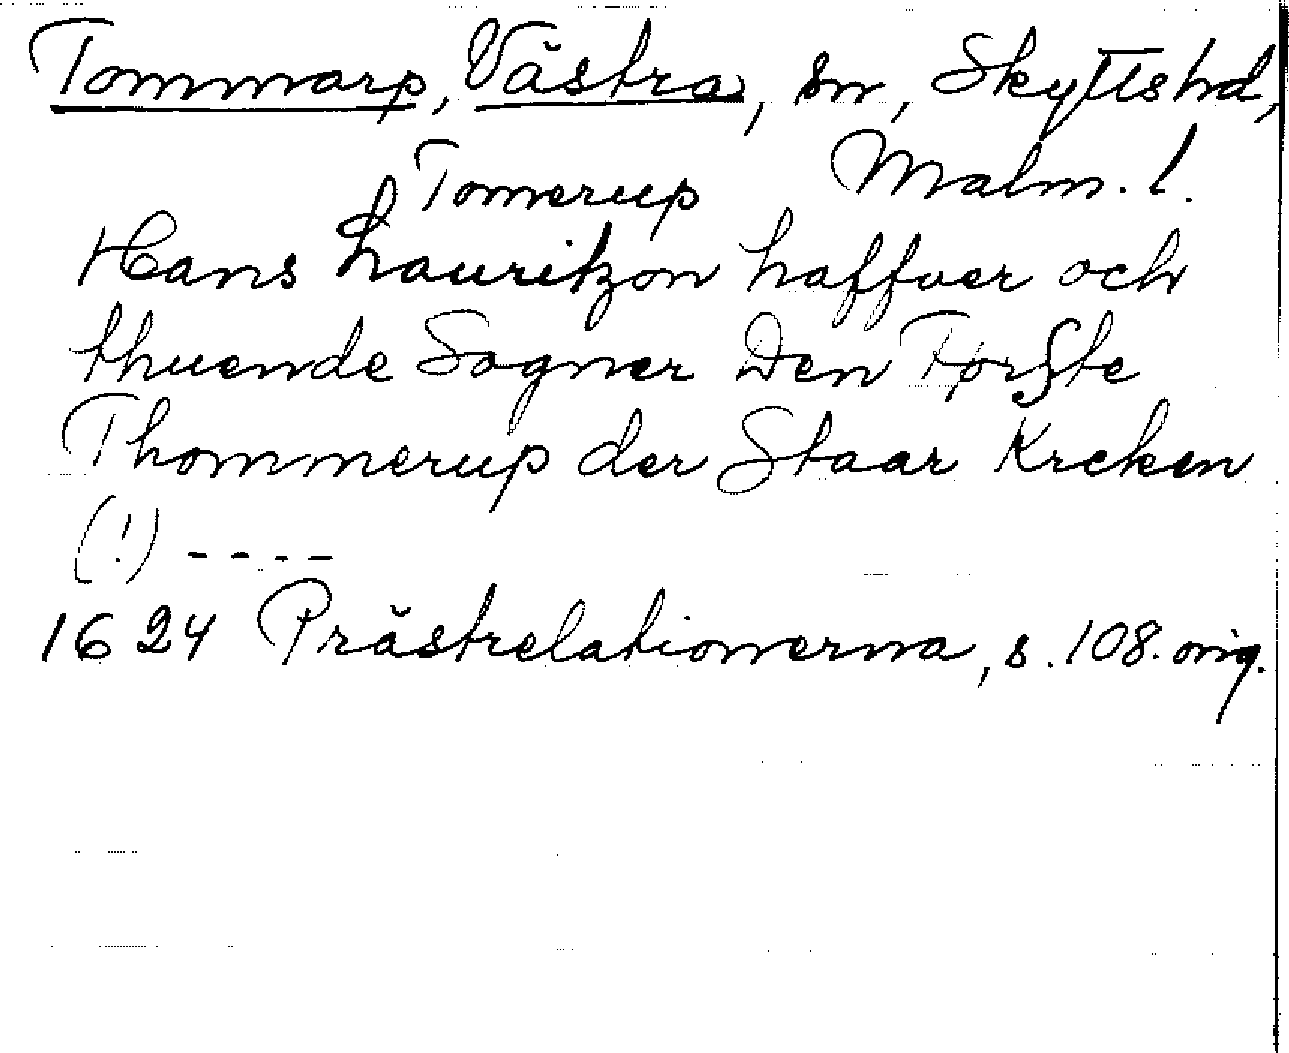 Tommarp, Västra, sn, Skytts hd,
Tomerup Malm. l.
Hans Lauritzon haffver och
thuende Sogner Den Første
Thommerup der Staar Krcken
(!) ----
1624 Prästrelationerna, s. 108. orig.